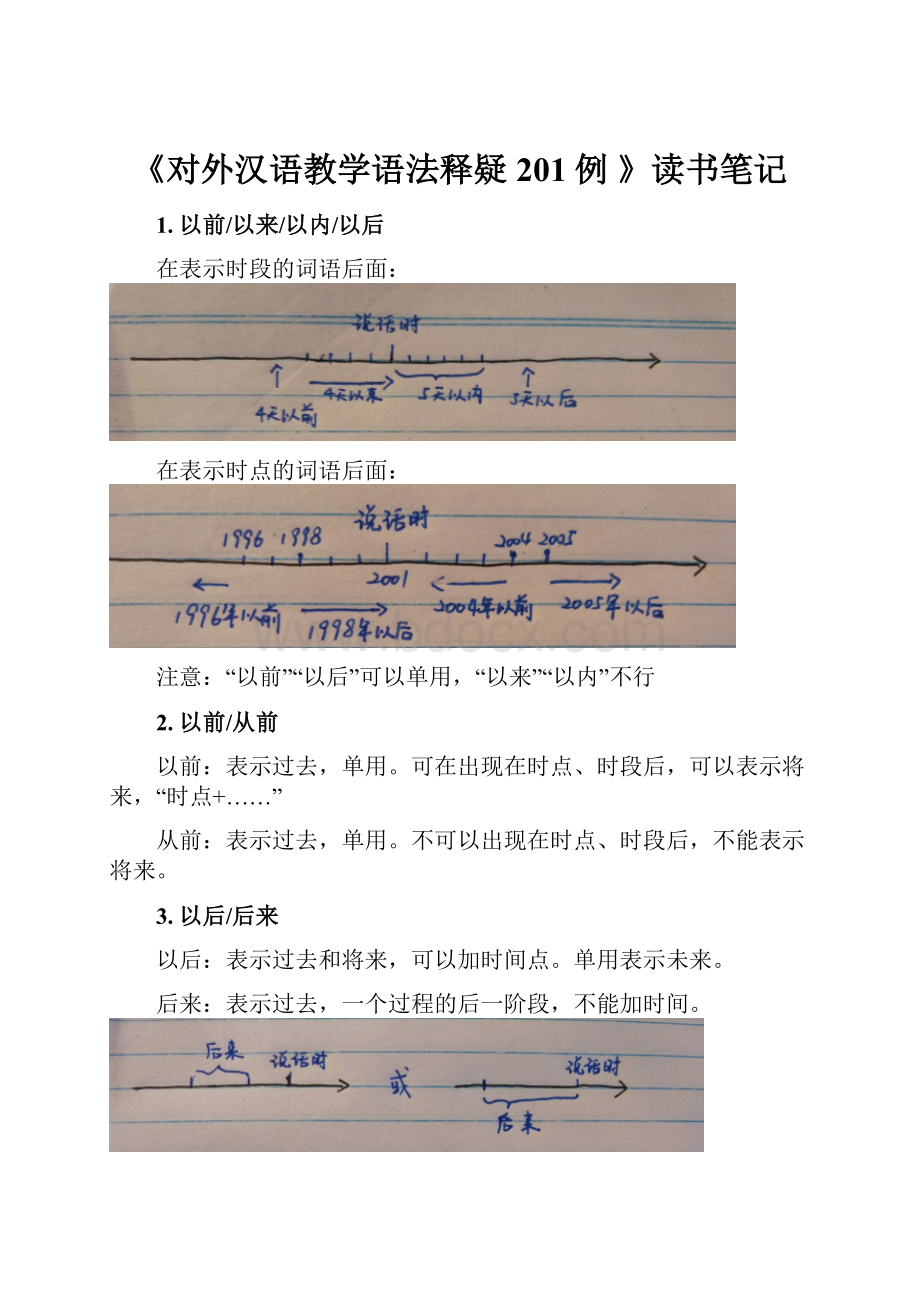 《对外汉语教学语法释疑 201 例 》读书笔记
1. 以前/以来/以内/以后
在表示时段的词语后面：
说话时
4天以前
4天以来
5天以内
5天以后
在表示时点的词语后面：
1996 1998 说话时 2004 2005
2001
1996年以前 1998年以后 2004年以前 2005年以后
注意：“以前”“以后”可以单用，“以来”“以内”不行
2. 以前/从前
以前：表示过去，单用。可在出现在时点、时段后，可以表示将
来，“时点+……”
从前：表示过去，单用。不可以出现在时点、时段后，不能表示
将来。
3. 以后/后来
以后：表示过去和将来，可以加时间点。单用表示未来。
后来：表示过去，一个过程的后一阶段，不能加时间。
后来 说话时 或 说话时
后来